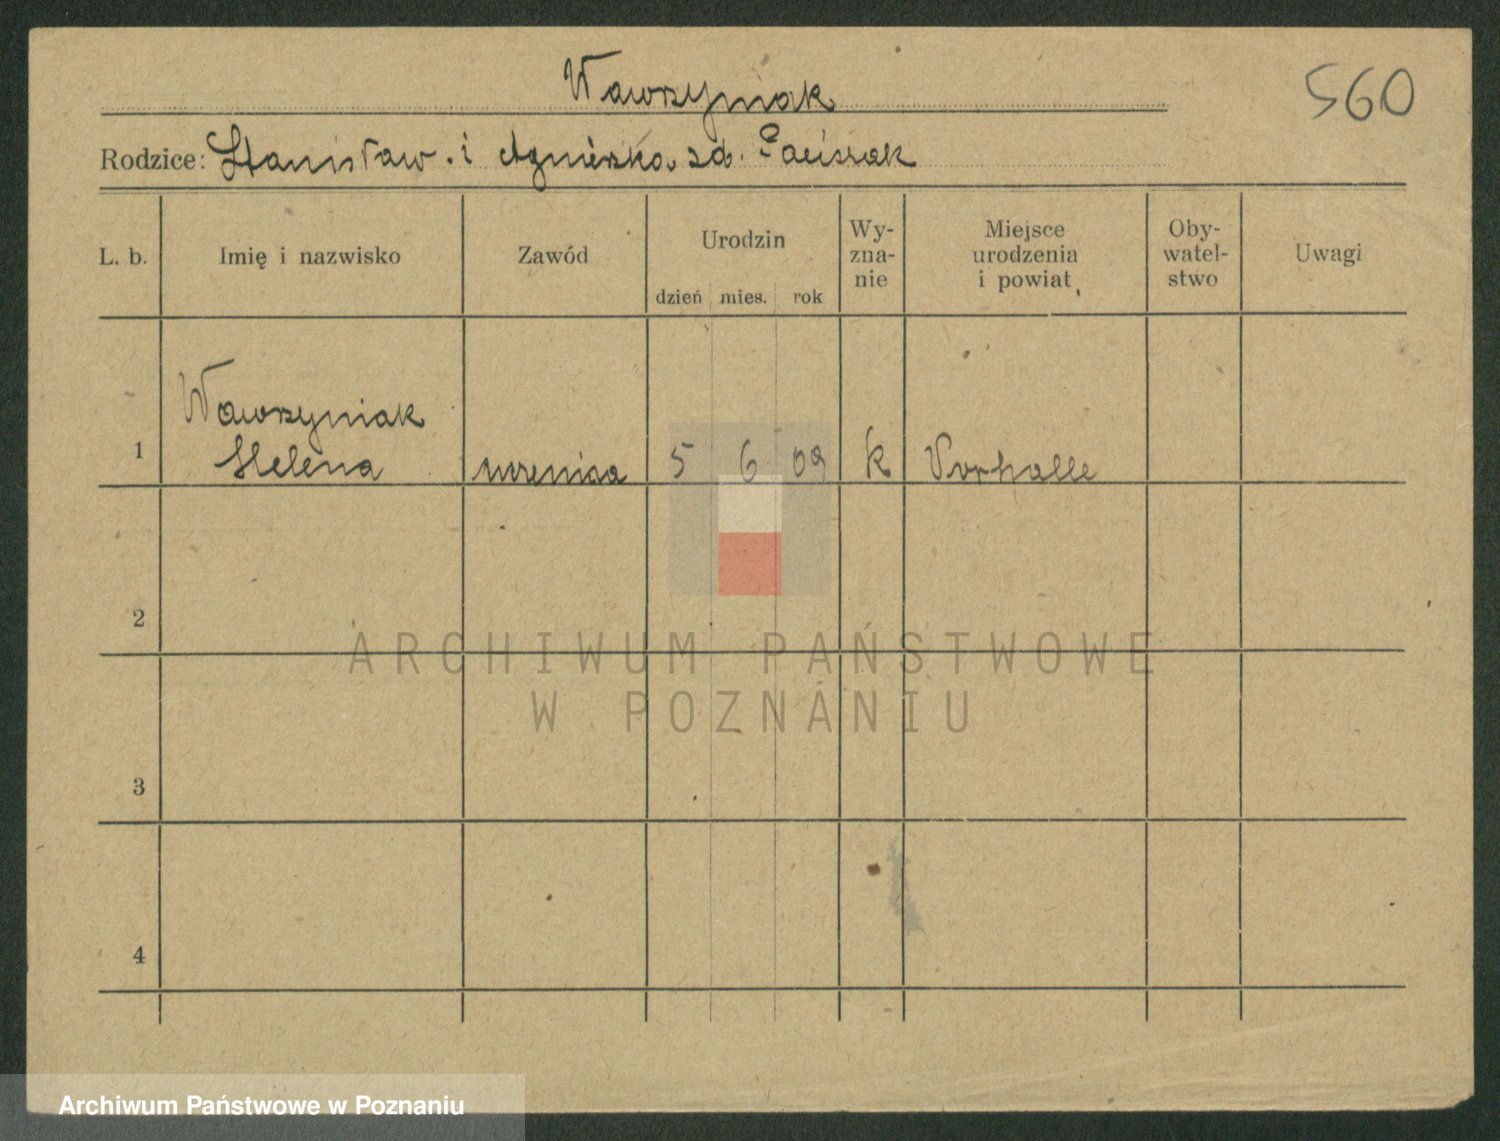 Wawrzyniak
560
Rodzice: Stanisław. i Agnieszka zd.
L. b.
Imię i nazwisko
Zawód
Urodzin
dzień mies. rok
Wy-
zna-
nie
Miejsce
urodzenia
i powiat
Oby-
watel-
stwo
Uwagi
1
Wawrzyniak
Helena
5 6 09 k Vorhalle
2
3
4
ARCHIWUM PAŃSTWOWE
W POZNANIU
Archiwum Państwowe w Poznaniu